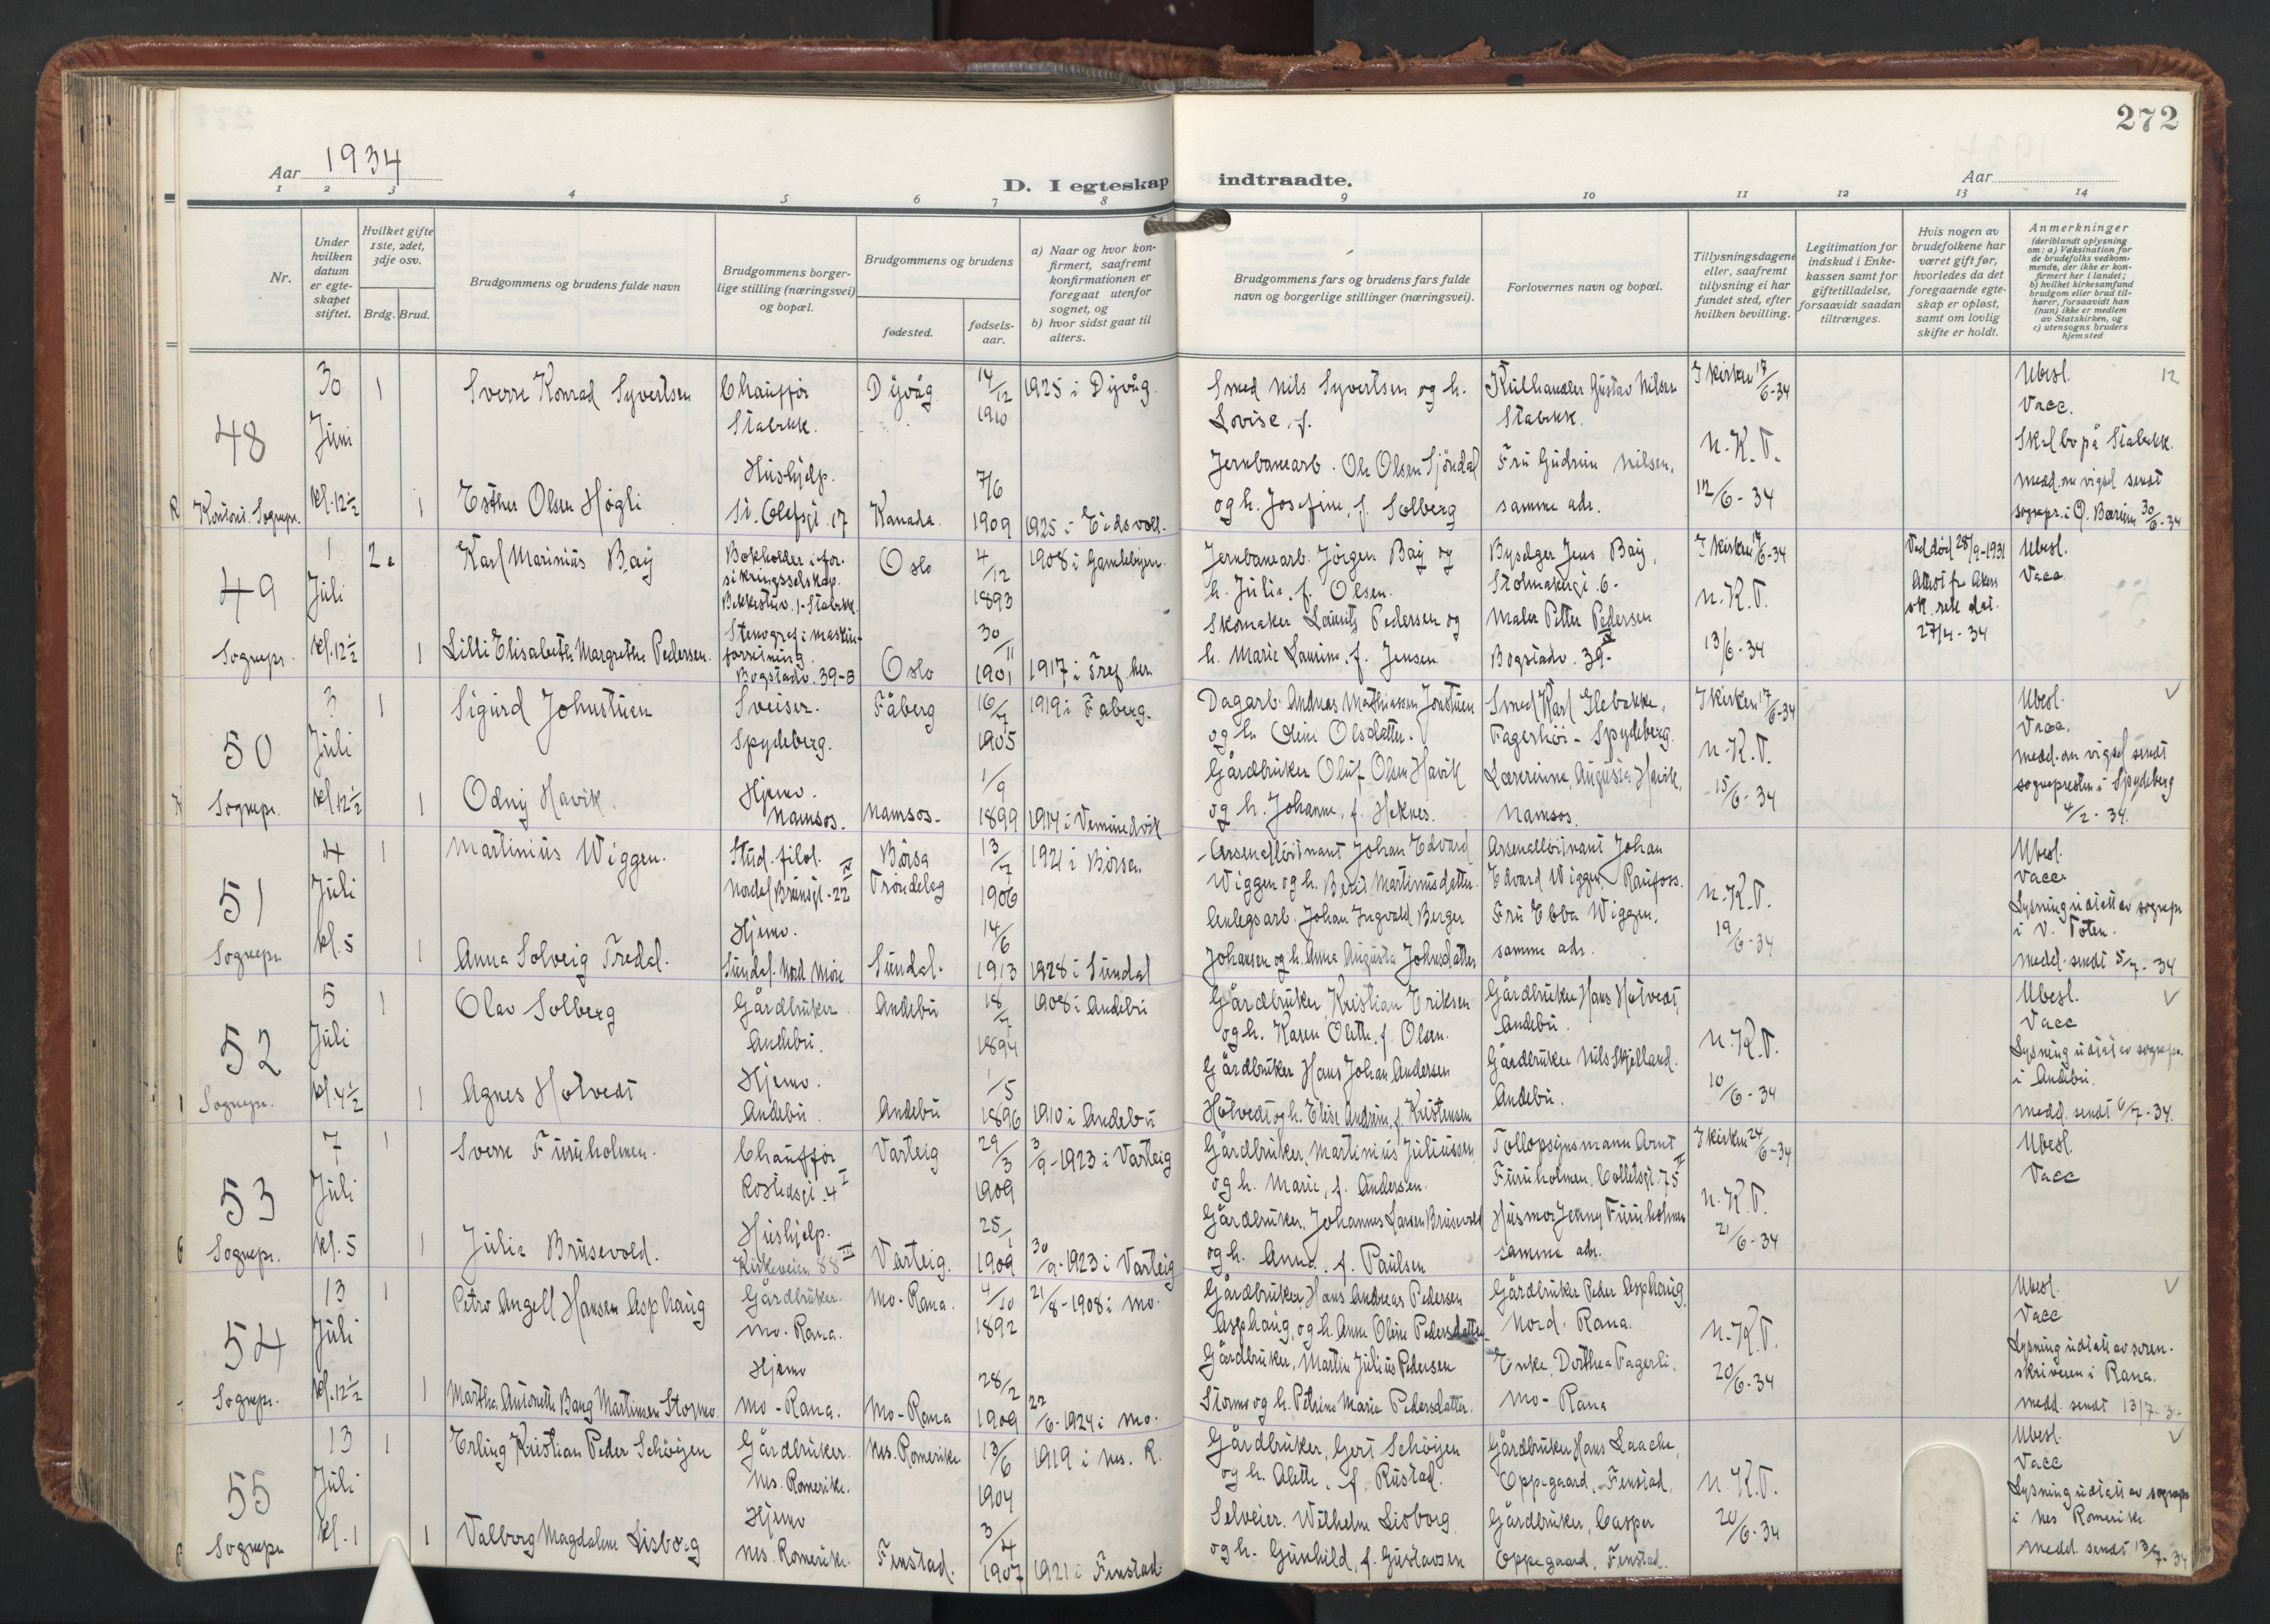 272
Aar 1934
D. I egteskap indtraadte.
Aar
1 2 3 4 5 6 7 8 9 10 11 12 13 14
Nr.
Under hvilken datum er egteskapet stiftet.
Hvilket gifte 1ste, 2det, 3dje osv.
Brdg. Brud.
Brudgommens og brudens fulde navn
Brudgommens borgerlige stilling (næringsvei) og bopæl.
Brudgommens og brudens
fødested.
fødselsaar.
a) Naar og hvor konfirmert, saafremt konfirmationen er foregaat utenfor sognet, og
b) hvor sidst gaat til alters.
Brudgommens fars og brudens fars fulde navn og borgerlige stillinger (næringsvei).
Forlovernes navn og bopæl.
Tillysningsdagene eller, saafremt tillysning ei har fundet sted, efter hvilken bevilling.
Legitimation for indskud i Enkekassen samt for giftetilladelse, forsaavidt saadan tiltrænges.
Hvis nogen av brudefolkene har været gift før, hvorledes da det foregaaende egteskap er opløst, samt om lovlig skifte er holdt.
Anmerkninger
(deriblandt oplysning om: a) Vaksination for de brudefolks vedkommende, der ikke er konfirmert her i landet; b) hvilket kirkesamfund brudgom eller brud tilhører, forsaavidt han (hun) ikke er medlem av Statskirken, og c) utensogns bruders hjemsted
48
30 Juni kl. 12½
1
Sverre Konrad Syvertsen
Chauffør
Stabekk.
Dyvåg
14/12 1910
1925 i Dyvåg.
Smed Nils Syvertsen og h.
Lovise, f.
Kulhandler Gustav Nilsen
Stabekk.
I kirken 17/6-34
N.K.T.
12/6-34
Ubesl.
Vacc.
Skal bo på Stabekk.
medd. om vigsel sendt
sognepr. i Ø. Bærum 30/6-34
12
Sognepr.
1
Esther Olsen Høgli
Hushjelp.
St. Olafsgt. 17
Kanada.
7/6 1909
1925 i Eidsvoll.
Jernbanearb. Ole Olsen Sjöndal
og h. Josefine, f. Solberg
Fru Gudrun Nilsen,
samme adr.
49
1 Juli kl. 12½
Sognepr.
2
Karl Marinius Bay
Bokholder i forsikringsselskap.
Bekkestuv. 1-Stabekk.
Oslo
4/12 1893
1908 i Gamlebyen.
Jernbanearb. Jörgen Bay og
h. Julie, f. Olsen.
Byselger Jens Bay,
Stolmakergt. 6.
I kirken 17/6-34
N.K.T.
13/6-34
Ved død 28/9-1931
Attest fr. Aker
sk. rett dat.
27/4-34
Ubesl.
Vacc.
1
Lilli Elisabeth Margrethe Pedersen.
Stenograf i maskinforretning.
Bogstadv. 39-B
Oslo
30/11 1901
1917 i Tref. ker.
Skomaker Laurits Pedersen og
h. Marie Laurine, f. Jensen
Maler Petter Pedersen
Bogstadv. 39
50
3 Juli kl. 12½
Sognepr.
1
Sigurd Johnstuen
Sveiser.
Spydeberg.
Fåberg
16/7 1905
1919 i Fåberg.
Dagarb. Andreas Mathiassen Jonstuen
og h. Oline Olsdatter.
Smed Karl Glebakke,
Fagerhöi - Spydeberg.
I kirken 17/6-34
N.K.T.
15/6-34
Ubesl.
Vacc.
medd. om vigsel sendt
sognepresten i Spydeberg
4/2-34.
1
Odny Havik.
Hjemv.
Namsos.
Namsos.
1/9 1899
1914 i Vemundvik
Gårdbruker Oluf Olsen Havik
og h. Johanne, f. Heknes.
Lærerinne, Augusta Havik,
Namsos.
51
4 Juli kl. 5
Sognepr.
1
Martinius Wiggen.
Stud. filol.
Nordal Brunsgt. 22 IV
Börsa
Tröndelag
13/7 1906
1921 i Börsa.
Arsenalløitnant Johan Edvard
Wiggen og h. Berit Martinusdatter.
Arsenalløitnant Johan
Edvard Wiggen, Raufoss.
N.K.T.
19/6-34
Ubesl.
Vacc.
Lysning utstatt av sognepr.
i V. Toten.
medd. sendt 5/7-34
1
Anna Solveig Tredal.
Hjemv.
Sundal. Nord Möre
Sundal.
14/6 1913
1928 i Sundal
Anlegsarb. Johan Ingvald Berger
Johansen og h. Anna Augusta Johnsdatter
Fru Ebba Wiggen,
samme adr.
52
5 Juli kl. 4½
Sognepr.
1
Olav Solberg
Gårdbruker
Andebu.
Andebu
18/7 1894
1908 i Andebu
Gårdbruker, Kristian Eriksen
og h. Karen Olette, f. Olsen.
Gårdbruker Hans Holvedt,
Andebu.
N.K.T.
10/6-34
Ubesl.
Vacc
Lysning utstatt av sognepr.
i Andebu.
medd. sendt 6/7-34.
1
Agnes Hotvedt
Hjemv.
Andebu.
Andebu
1/5 1896
1910 i Andebu
Gårdbruker Hans Johan Andersen
Hotvedt og h. Elise Andrine, f. Kristensen
Gårdbruker Nils Skjelland.
Andebu.
53
7 Juli kl. 5
Sognepr.
1
Sverre Furuholmen.
Chauffør
Rostedsgt. 4 I
Varteig
29/3 1909
3/9-1923 i Varteig
Gårdbruker, Martinius Juliussen
og h. Marie, f. Andersen.
Tollopsynsmann Arnt
Furuholmen. Colletsgt. 75 II
I kirken 24/6-34
N.K.T.
21/6-34
Ubesl.
Vacc
1
Julia Brusevold.
Hushjelp.
Kirkeveien 88 III
Varteig.
25/1 1909
30/9-1923 i Varteig
Gårdbruker, Johannes Larsen Brusevold
og h. Anna, f. Paulsen
Husmor Jenny Furuholmen
samme adr.
54
13 Juli kl. 12½
Sognepr.
1
Petro Angell Hansen Asphaug
Gårdbruker.
Mo-Rana.
Mo-Rana.
4/10 1892
21/8-1908 i Mo.
Gårdbruker, Hans Andreas Pedersen
Asphaug, og h. Anne Oline Pedersdatter
Gårdbruker Peder Asphaug,
Nord. Rana.
N.K.T.
20/6-34
Ubesl.
Vacc
Lysning utstatt av sorenskriveren i Rana.
medd. sendt 13/7-34
1
Martha Antonette Bang Martinsen Stormo.
Hjemv
Mo-Rana.
Mo-Rana
28/2 1909
22/6-1924 i Mo.
Gårdbruker, Martin Julius Pedersen
Stormo og h. Petrine Marie Pedersdatter.
Enke, Dorthea Fagerli.
Mo-Rana
55
13 Juli kl. 1
Sognepr
1
Erling Kristian Peder Schöyen
Gårdbruker.
Nes. Romerike.
Nes. Romerike
13/6 1904
1919 i Nes. R.
Gårdbruker, Gert Schöyen
og h. Alette, f. Rustad.
Gårdbruker Hans Laache,
Oppegaard, Fenstad.
N.K.T.
20/6-34
Ubesl.
Vacc
Lysning utstatt av sognepr
i Nes Romerike
medd. sendt 13/7-34
1
Valborg Magdalene Lisborg
Hjemv
Nes. Romerike.
Fenstad.
3/4 1907
1921 i Fenstad.
Selveier. Wilhelm Lisborg
og h. Gunhild, f. Gustavsen
Gårdbruker, Casper
Oppegaard, Fenstad.